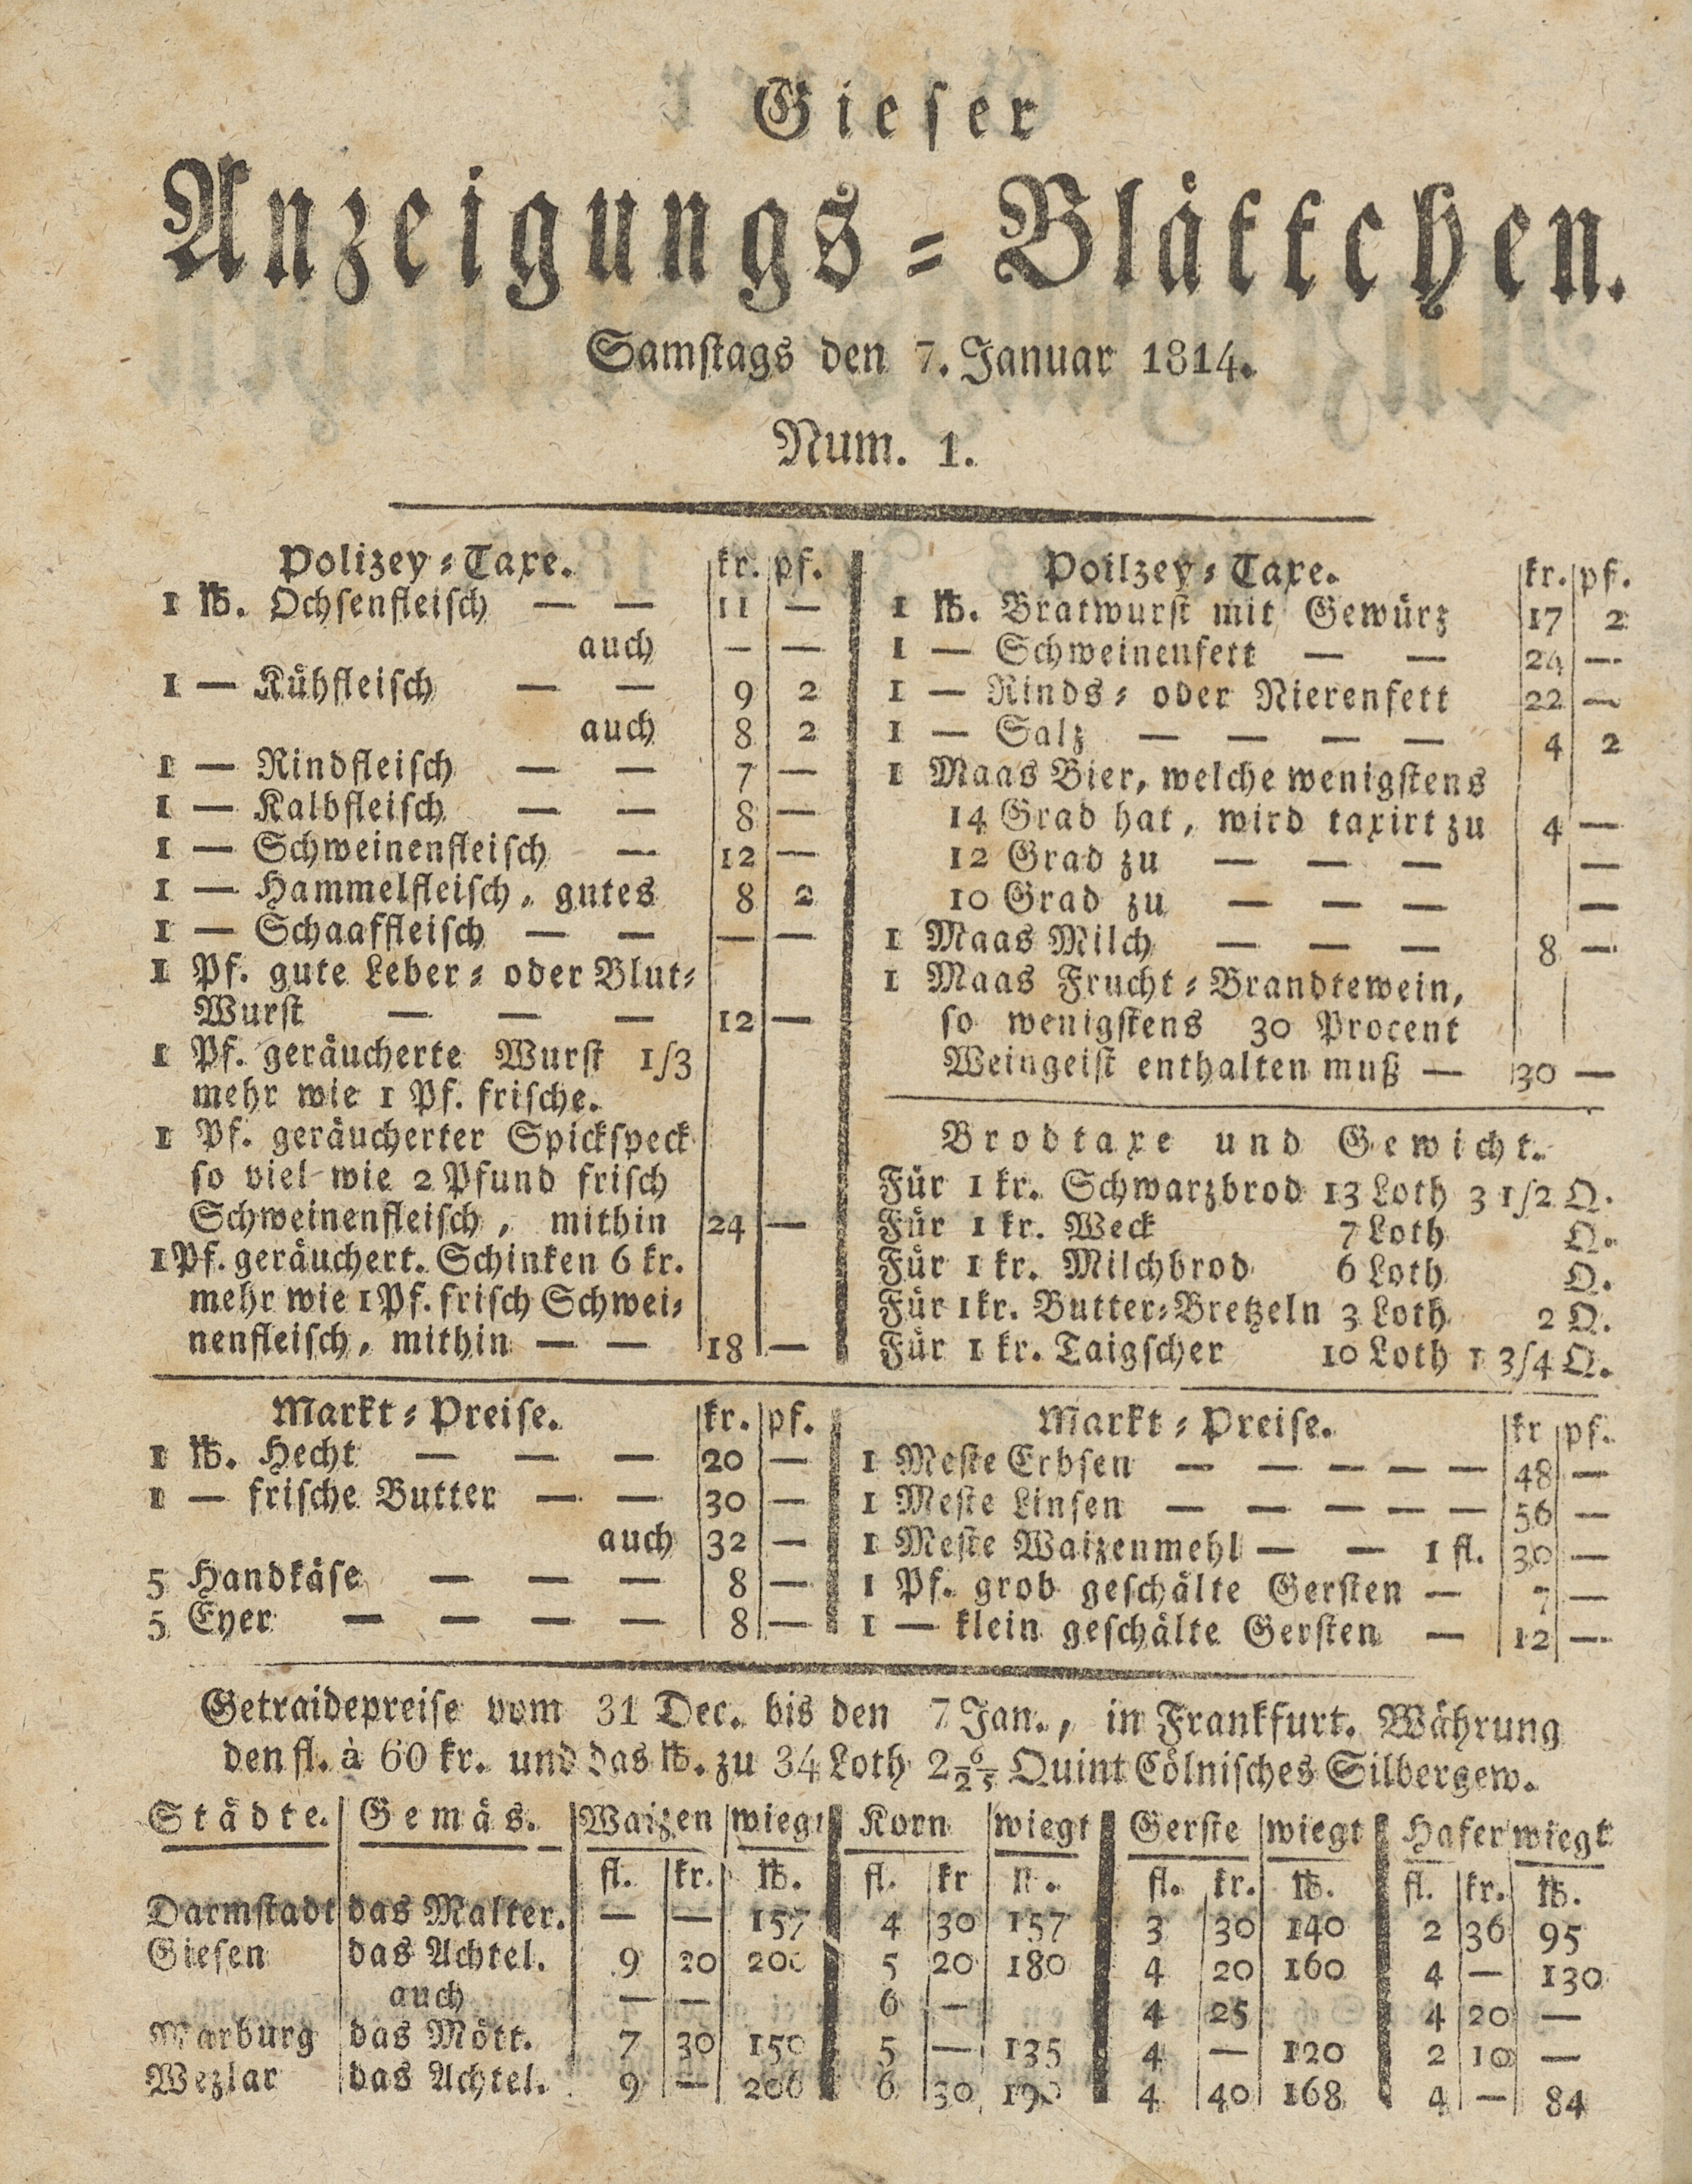 Gieser
Anzeigungs-Blåttchen.
Samstags den 7. Januar 1814.
Num. 1.
Polizey-Taxe. kr. pf.
1 ℔. Ochsenfleisch — — 11 —
auch — —
1 — Kühfleisch — — 9 2
auch 8 2
1 — Rindfleisch — — 7 —
1 — Kalbfleisch — — 8 —
1 — Schweinenfleisch — 12 —
1 — Hammelfleisch, gutes 8 2
1 — Schaaffleisch — — — —
1 Pf. gute Leber- oder Blut-
Wurst — — — 12 —
1 Pf. geräucherte Wurst 1/3
mehr wie 1 Pf. frische.
1 Pf. geräucherter Spickspeck
so viel wie 2 Pfund frisch
Schweinenfleisch, mithin 24 —
1 Pf. geräuchert. Schinken 6 kr.
mehr wie 1 Pf. frisch Schwei-
nenfleisch, mithin — — 18 —
Poilzey-Taxe. kr. pf.
1 ℔. Bratwurst mit Gewürz 17 2
1 — Schweinenfett — — 24 —
1 — Rinds- oder Nierenfett 22 —
1 — Salz — — — — 4 2
1 Maas Bier, welche wenigstens
14 Grad hat, wird taxirt zu 4 —
12 Grad zu — — — —
10 Grad zu — — — —
1 Maas Milch — — — 8 —
1 Maas Frucht-Brandtewein,
so wenigstens 30 Procent
Weingeist enthalten muß — 30 —
Brodtaxe und Gewicht.
Für 1 kr. Schwarzbrod 13 Loth 3 1/2 Q.
Für 1 kr. Weck 7 Loth Q.
Für 1 kr. Milchbrod 6 Loth Q.
Für 1 kr. Butter-Bretzeln 3 Loth 2 Q.
Für 1 kr. Taigscher 10 Loth 1 3/4 Q.
Markt-Preise. kr. pf.
1 ℔. Hecht — — — 20 —
1 — frische Butter — — 30 —
auch 32 —
5 Handkäse — — — 8 —
5 Eyer — — — — 8 —
Markt-Preise. kr pf.
1 Meste Erbsen — — — — — 48 —
1 Meste Linsen — — — — — 56 —
1 Meste Waizenmehl — — 1 fl. 30 —
1 Pf. grob geschälte Gersten — 7 —
1 — klein geschälte Gersten — 12 —
Getraidepreise vom 31 Dec. bis den 7 Jan., in Frankfurt. Währung
den fl. à 60 kr. und das ℔. zu 34 Loth 2 6/25 Quint Cölnisches Silbergew.
Städte. Gemäs. Waizen wiegt Korn wiegt Gerste wiegt Hafer wiegt
fl. kr. ℔. fl. kr fl. kr. ℔. fl. kr. ℔.
Darmstadt das Malter. — — 157 4 30 157 3 30 140 2 36 95
Giesen das Achtel. 9 20 200 5 20 180 4 20 160 4 — 130
auch — — 6 — 4 25 4 20 —
Marburg das Mött. 7 30 150 5 — 135 4 — 120 2 10 —
Wezlar das Achtel. 9 — 206 6 30 190 4 40 168 4 — 84